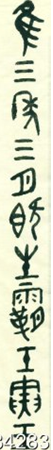 隹三年三月既生霸壬寅王
34283